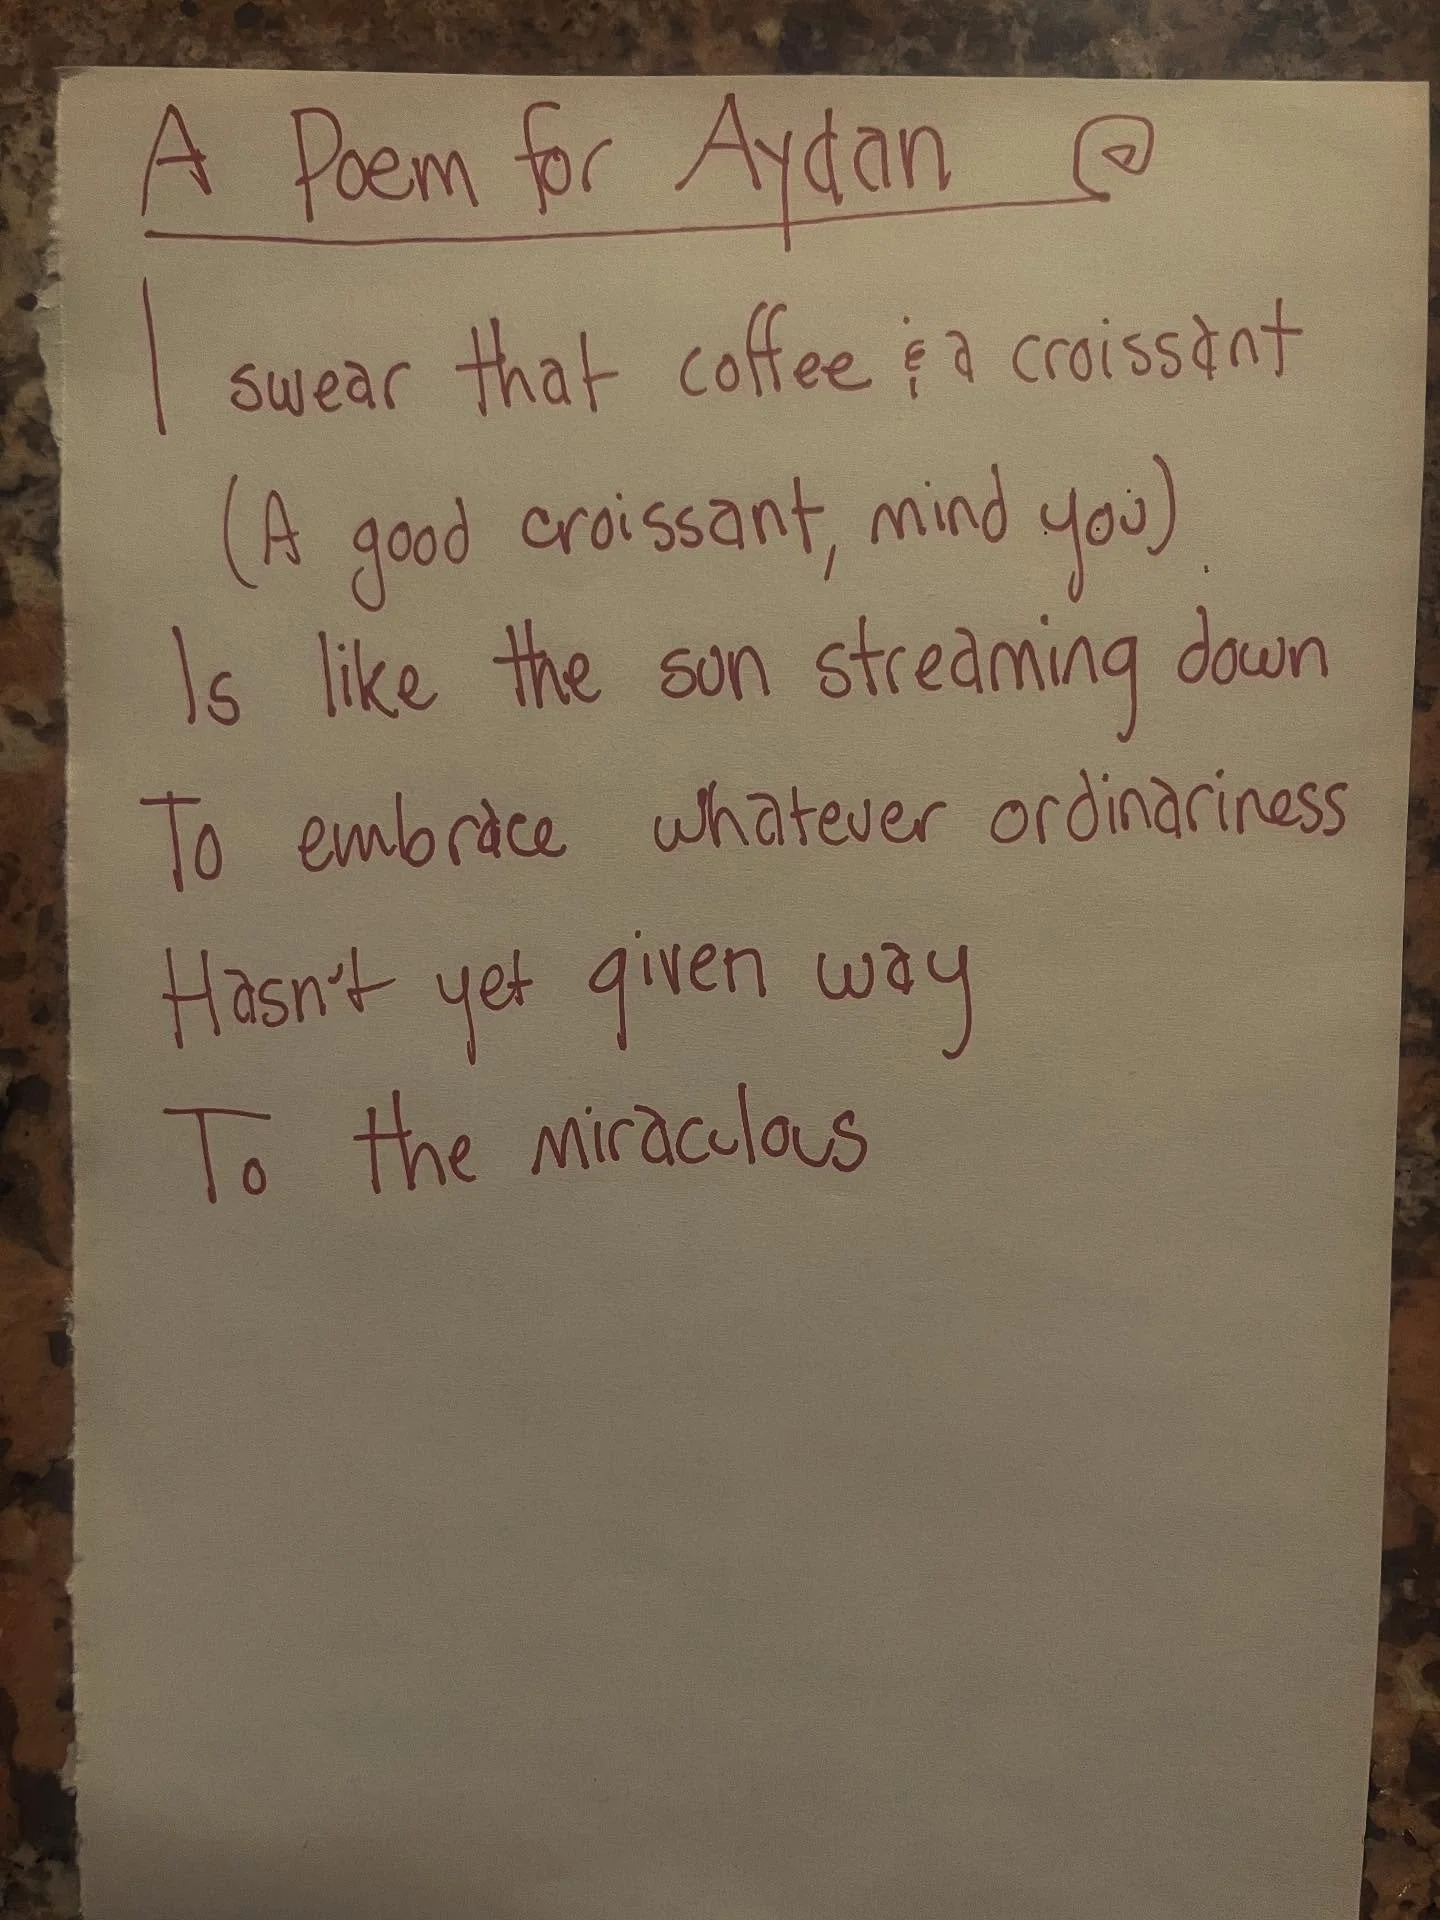 A Poem for Aydan
I swear that coffee & a croissant
(A good croissant, mind you)
Is like the sun streaming down
To embrace whatever ordinariness
Hasn't yet given way
To the miraculous